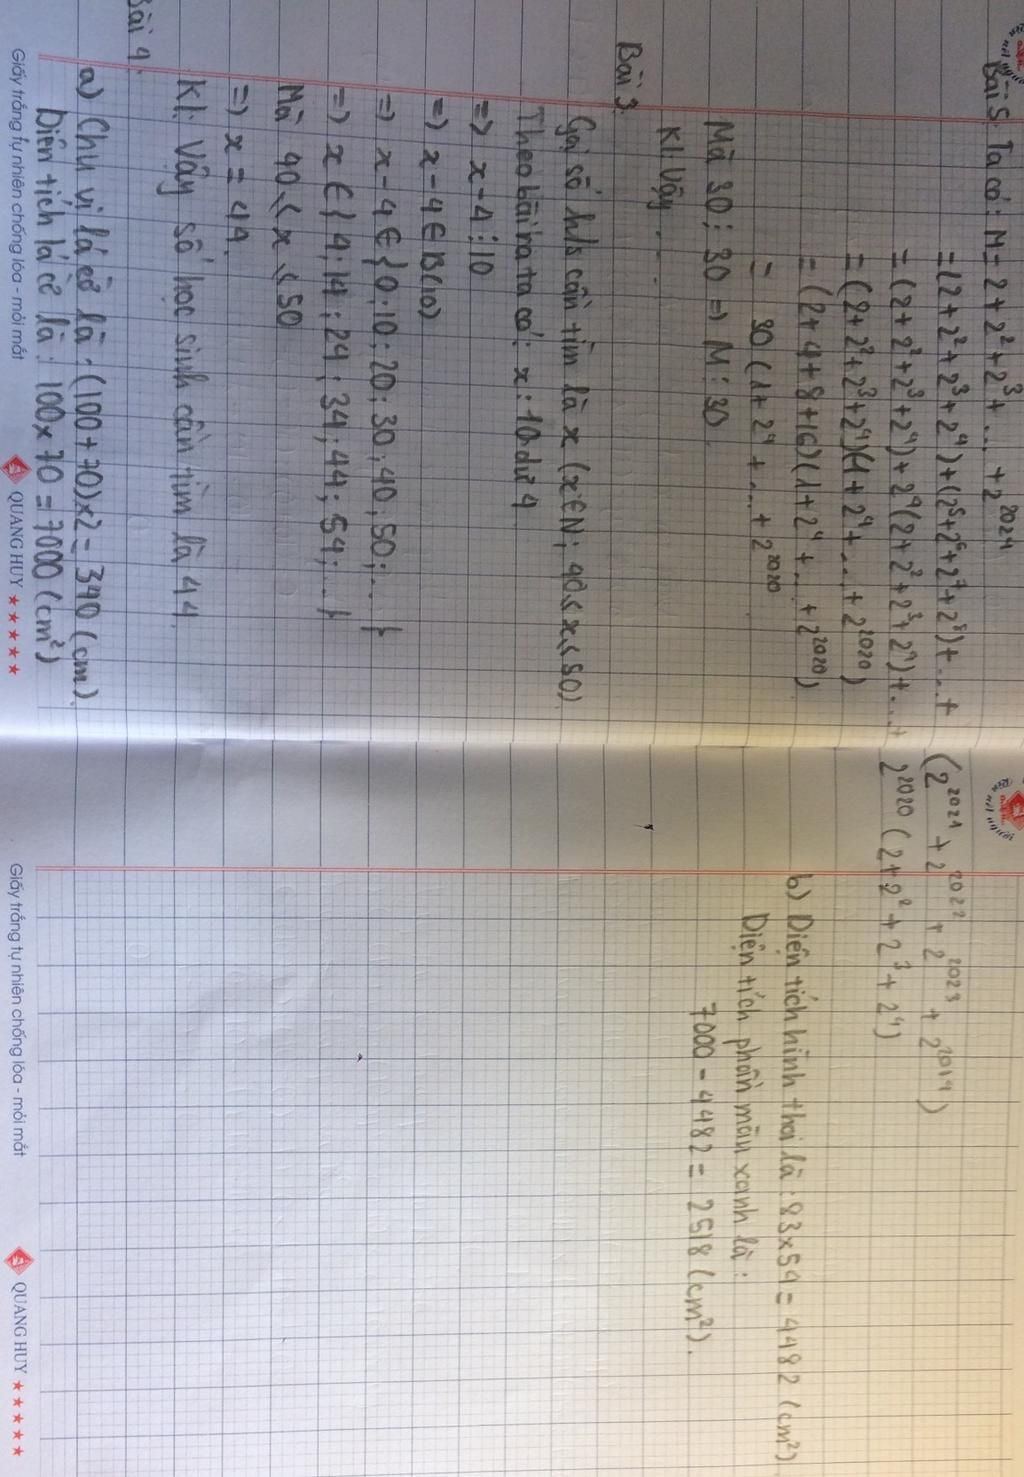 Bài 5. Ta có: M = 2 + 2² + 2³ + ... + 2²⁰²⁴
= (2 + 2² + 2³ + 2⁴) + (2⁵ + 2⁶ + 2⁷ + 2⁸) + ... + (2²⁰²¹ + 2²⁰²² + 2²⁰²³ + 2²⁰¹⁴)
= (2 + 2² + 2³ + 2⁴) + 2⁴(2 + 2² + 2³ + 2⁴) + ... + 2²⁰²⁰(2 + 2² + 2³ + 2⁴)
= (2 + 2² + 2³ + 2⁴)(1 + 2⁴ + ... + 2²⁰²⁰)
= (2 + 4 + 8 + 16)(1 + 2⁴ + ... + 2²⁰²⁰)
= 30(1 + 2⁴ + ... + 2²⁰²⁰
Mà 30 ⋮ 30 => M ⋮ 30
Kl: Vậy ...
Bài 3.
Gọi số h/s cần tìm là x (x ∈ N; 40 ≤ x ≤ 50)
Theo bài ra ta có: x : 10 dư 4
=> x - 4 ⋮ 10
=> x - 4 ∈ B(10)
=> x - 4 ∈ {0; 10; 20; 30; 40; 50; ... }
=> x ∈ {4; 14; 24; 34; 44; 54; ...}
Mà 40 ≤ x ≤ 50
=> x = 44.
Kl: Vậy số học sinh cần tìm là 44.
Bài 4.
a) Chu vi lá cờ là: (100 + 70) x 2 = 340 (cm).
Diện tích lá cờ là: 100 x 70 = 7000 (cm²)
Giấy trắng tự nhiên chống lóa - mỏi mắt
QUANG HUY
b) Diện tích hình thoi là: 83 x 54 = 4482 (cm²)
Diện tích phần màu xanh là:
7000 - 4482 = 2518 (cm²).
Giấy trắng tự nhiên chống lóa - mỏi mắt
QUANG HUY